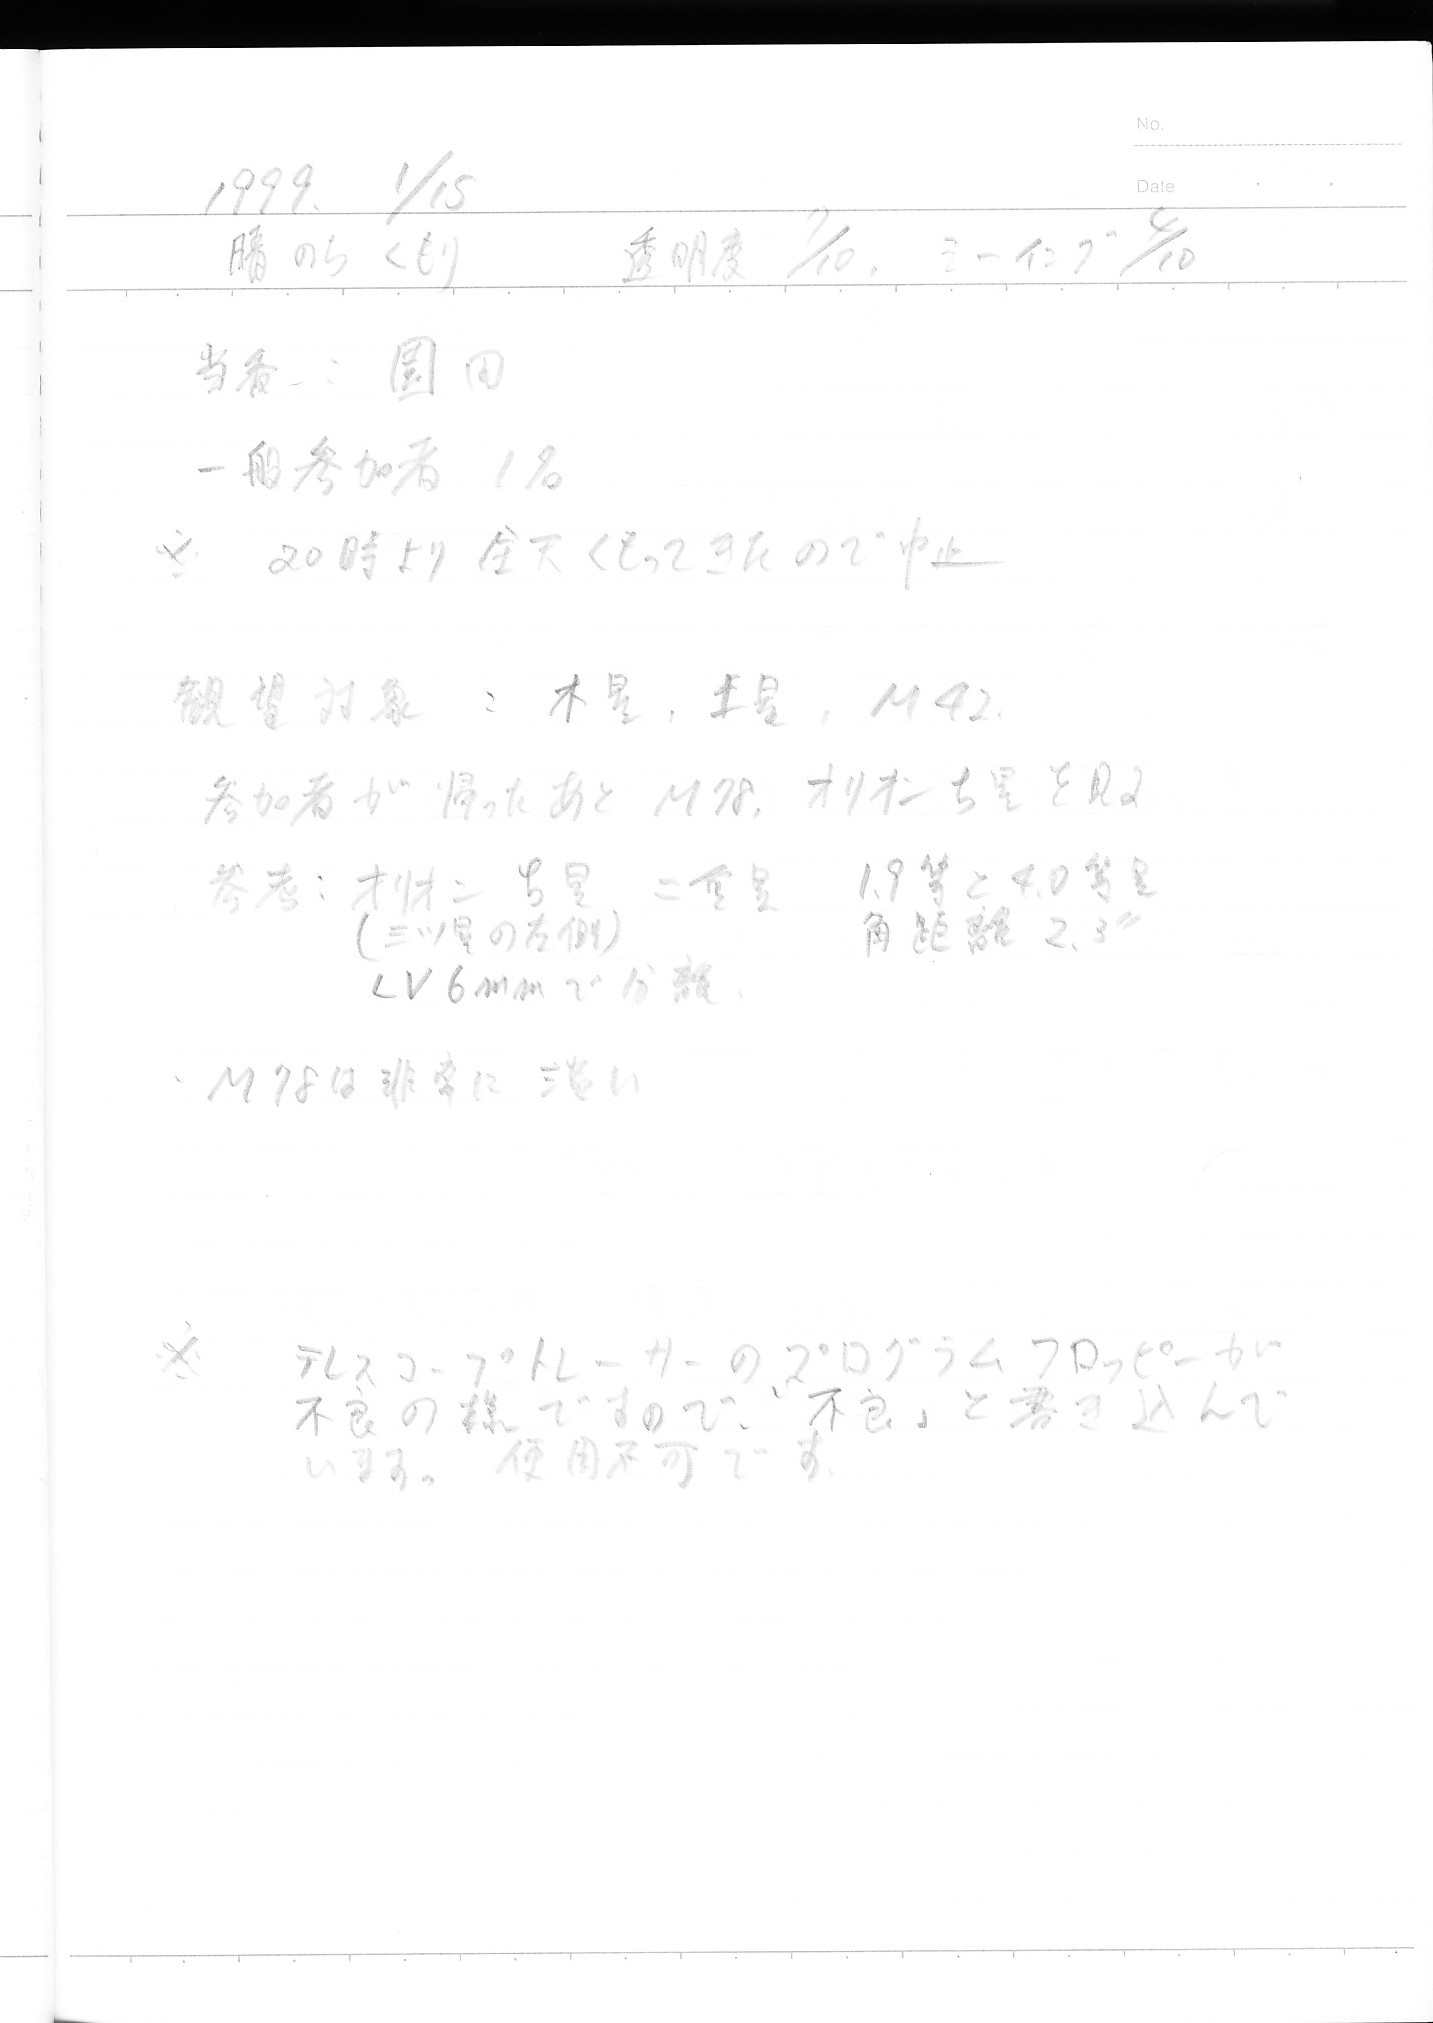 No.
Date
1999. 1/15
晴のちくもり 透明度 7/10. シーイング 6/10
当番 : 園田
一般参加者 1名
※ 20時より全天くもってきたので中止
観望対象 : 木星, 土星, M42.
参加者が帰ったあと M78, オリオンち星を見る
参考: オリオン ち星 二重星 1.9等と4.0等星
(三ツ星の左側) 角距離 2.3"
LV6mmで分離.
・M78は非常に淡い
※ テレスコープトレーサーのプログラムフロッピーが
不良の様ですので、「不良」と書き込んで
います。 使用不可です.